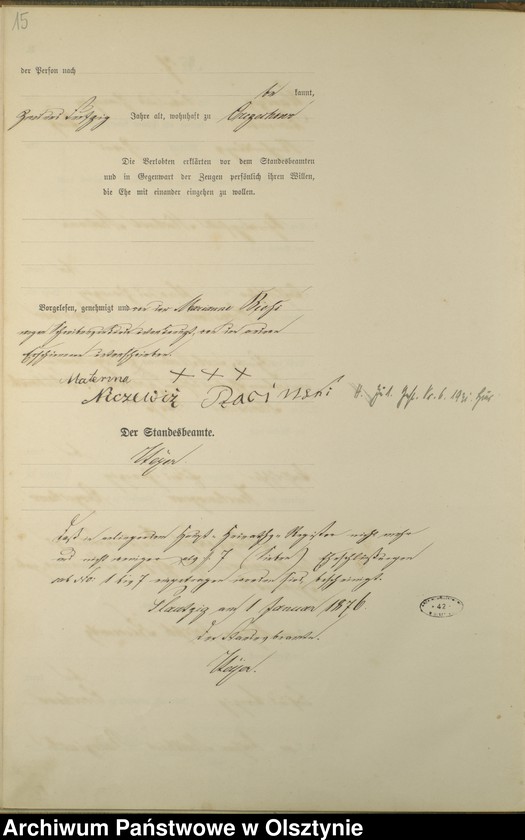 15
der Person nach
be kannt,
zwei und fünfzig Jahre alt, wohnhaft zu
Die Verlobten erklärten vor dem Standesbeamten
und in Gegenwart der Zeugen persönlich ihren Willen,
die Ehe mit einander eingehen zu wollen.
Vorgelesen, genehmigt und von der Marianna
wegen Schreibensunkunde unterkreuzt, von den anderen
Erschienenen unterschrieben.
Materna + + +
Der Standesbeamte.
Daß in vorliegendem Haupt-Heiraths-Register nicht mehr
und nicht weniger als 7 (sieben) Eheschließungen
sub No. 1 bis 7 eingetragen worden sind, bescheinigt.
am 1 Januar 1876.
Der Standesbeamte.
42
Archiwum Państwowe w Olsztynie